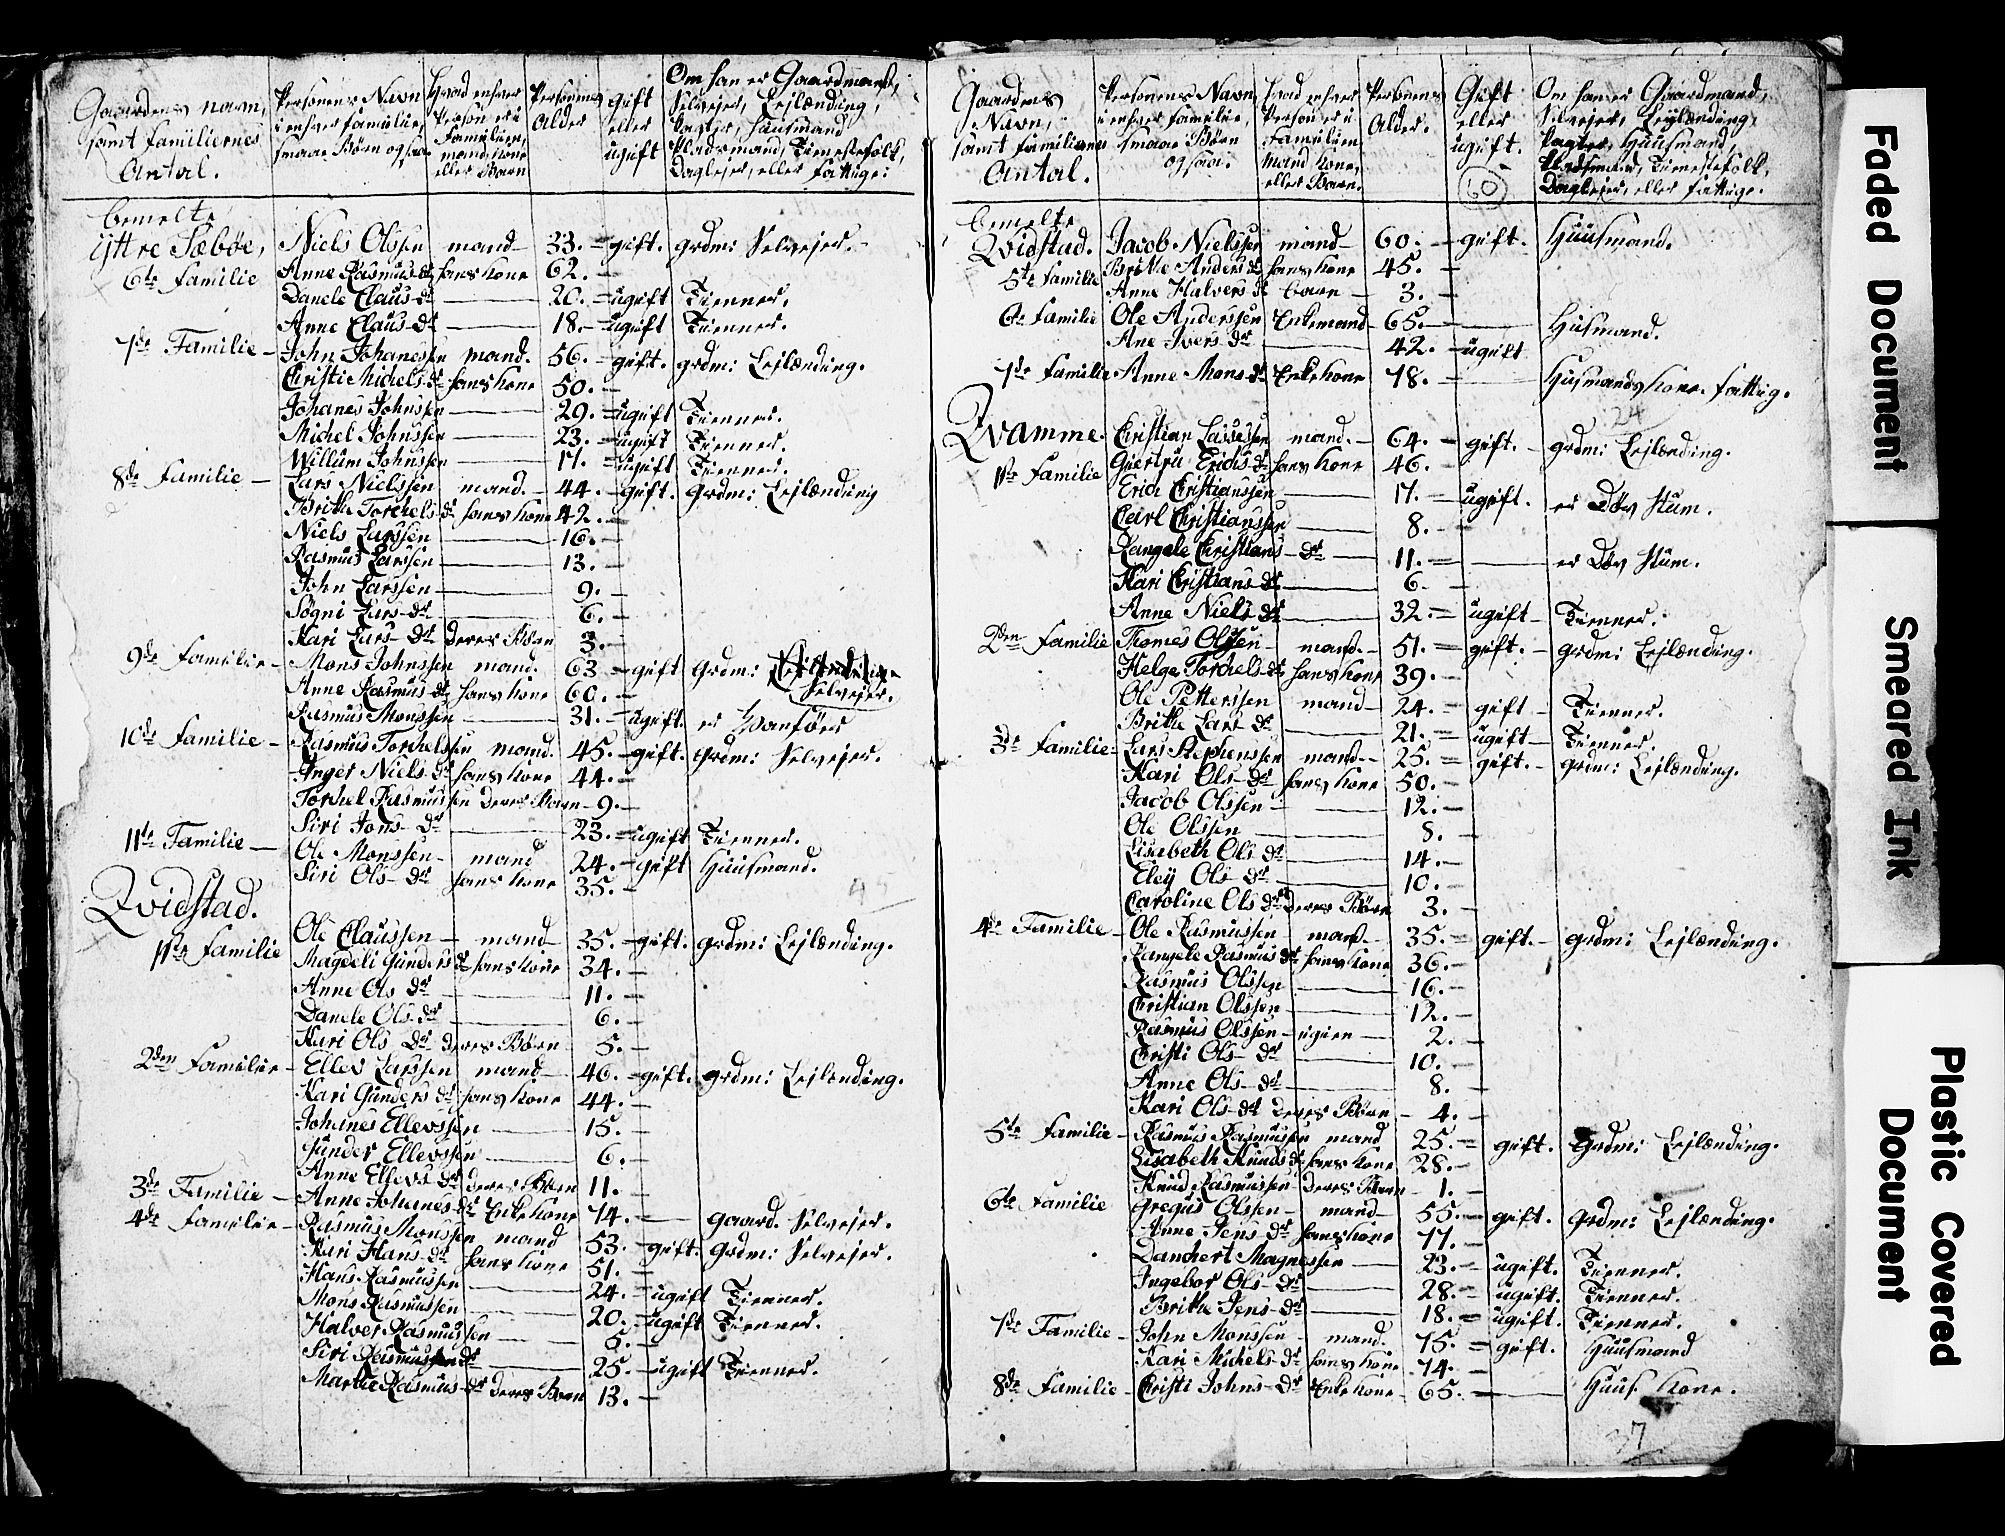 Gaardens navn, samt familiernes Antal. | Personens Navn i enhver familie, smaae Børn og saa | Hvad enhver Person er i Familien, mand, kone eller Barn | Personens Alder | gift eller ugift | Om han er Gaardmand, Selvejer, Lejlænding, Pagter, Huusmand Pladsmand, Tienestefolk, Daglejer, eller fattige:
bemelte
Yttre Sæbøe,
6te Familie Niels Olssen mand 33. gift. grdm: Selvejer.
Anne Rasmus dr hans kone 62.
Danele Claus dr 20. ugift Tienner.
Anne Claus dr 18. ugift Tienner.
7de Familie John Johanessen mand. 56. gift. grdm: Lejlænding.
Christi Michels dr hans kone 50.
Johanes Johnssen 29. ugift Tienner.
Michel Johnssen 23. ugift Tienner.
Willum Johnssen 17. ugift Tienner.
8de Familie Lars Nielssen mand. 44. gift. Grdm: Lejlænding
Brithe Torchels dr hans kone 42.
Niels Larssen 16.
Rasmus Larssen 13.
John Larssen 9.
Søgni Lars dr 6.
Kari Lars dr deres Børn 3.
9de Familie Mons Johnssen mand. 63 gift Grdm: Selvejer.
Anne Rasmus dr hans kone 60.
Rasmus Monssen 31. ugift. er Vanfør
10de Familie Rasmus Torchelssen mand. 45. gift. Grdm: Selvejer.
Inger Niels dr hans kone 44.
Torchel Rasmussen deres Barn 9.
Siri Jons dr 23. ugift Tienner.
11te Familie Ole Monssen mand 24. gift Huusmand.
Siri Ols dr hans kone 35.
45
Qvidstad.
1ste Familie Ole Claussen mand 35. gift. grdm: Lejlænding.
Magdeli Gunders dr hans kone 34.
Anne Ols dr 11.
Danele Ols dr 6.
Kari Ols dr deres Børn 5.
2den Familie Ellev Larssen mand 46. gift. grdm: Lejlænding.
Kari Gunders dr hans kone 44.
Johanes Ellevssen 15.
Gunder Ellevssen 6.
Anne Ellevs dr deres Børn 11.
3de Familie Anne Johanes dr Enkekone 74. gaard. Selvejer.
4de Familie Rasmus Monssen mand 53. gift. Grdm: Selvejer.
Kari Hans dr hans kone 51.
Hans Rasmussen 24. ugift Tienner.
Mons Rasmussen 20. ugift Tienner.
Halver Rasmussen 5.
Siri Rasmus dr 25. ugift Tienner.
Marthe Rasmus dr deres Børn 13.
Gaardens Navn, samt familiernes Antal. | Personens Navn i enhver familie, smaae Børn og saa. | Hvad enhver Person er i Familien Mand kone, eller Barn. | Personens Alder. | Gift eller ugift. | Om han er Gaardmand, Selvejer, Lejlænding, Pagter, Huusmand, Pladsmand, Tienestefolk, Daglejer, eller fattige.
60
bemelte
Qvidstad.
5te Familie Jacob Nielssen mand 60. gift. Huusmand.
Brithe Anders dr hans kone 45.
Anne Halvers dr barn 3.
6te Familie Ole Anderssen Enkemand 65. Husmand.
Ane Ivers dr 42. ugift
7de Familie Anne Mons dr Enkekone 78. Husmands kone. fattig.
24
Qvamme.
1ste Familie Christian Lassessen mand. 64. gift. grdm: Lejlænding.
Giertru Erichs dr hans kone 46.
Erich Christianssen 17. ugift. er Døv Stum.
Carl Christianssen 8.
Rangele Christians dr 11. er Døv Stum.
Kari Christians dr 6.
Anne Niels dr 32. ugift Tienner.
2den Familie Thomes Olssen mand. 51. gift. grdm: Lejlænding.
Helge Torchels dr hans kone 39.
Ole Petterssen mand 24. gift Tienner.
Brithe Lars dr 21. ugift Tienner.
3de Familie Lars Stephenssen mand 25. gift. grdm: Lejlænding.
Kari Ols dr hans kone 50.
Jacob Olssen 12.
Ole Olssen 8.
Lisabeth Ols dr 14.
Eley Ols dr 10.
Caroline Ols dr deres Børn 3.
4de Familie Ole Rasmussen mand 35. gift. grdm: Lejlænding.
Rangele Rasmus dr hans kone 36.
Rasmus Olssen 16.
Christian Olssen 12.
Rasmus Olssen ugien 2.
Christi Ols dr 10.
Anne Ols dr 8.
Kari Ols dr deres Børn 4.
5te Familie Rasmus Rasmussen mand 25. gift. Grdm: Lejlænding.
Lisabeth Knuds dr hans kone 28.
Knud Rasmussen deres Barn 1.
6te Familie Gregus Olssen mand 55. gift. Grdm: Lejlænding.
Anne Jens dr hans kone 77.
Danchert Magnessen 23. ugift. Tienner.
Ingebor Ols dr 28. ugift. Tienner.
Brithe Jens dr 18. ugift. Tienner.
7de Familie John Monssen mand. 75. gift. Huusmand
Kari Michels dr hans kone 74.
8de Familie Christi Johns dr Enke kone 65. Huus kone.
37
Faded Document
Smeared Ink
Plastic Covered Document